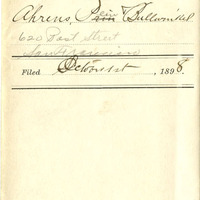 Ahrens, Pein & Bullwinkel
620 Post Street
San Francisco
Filed October 1st, 1898.